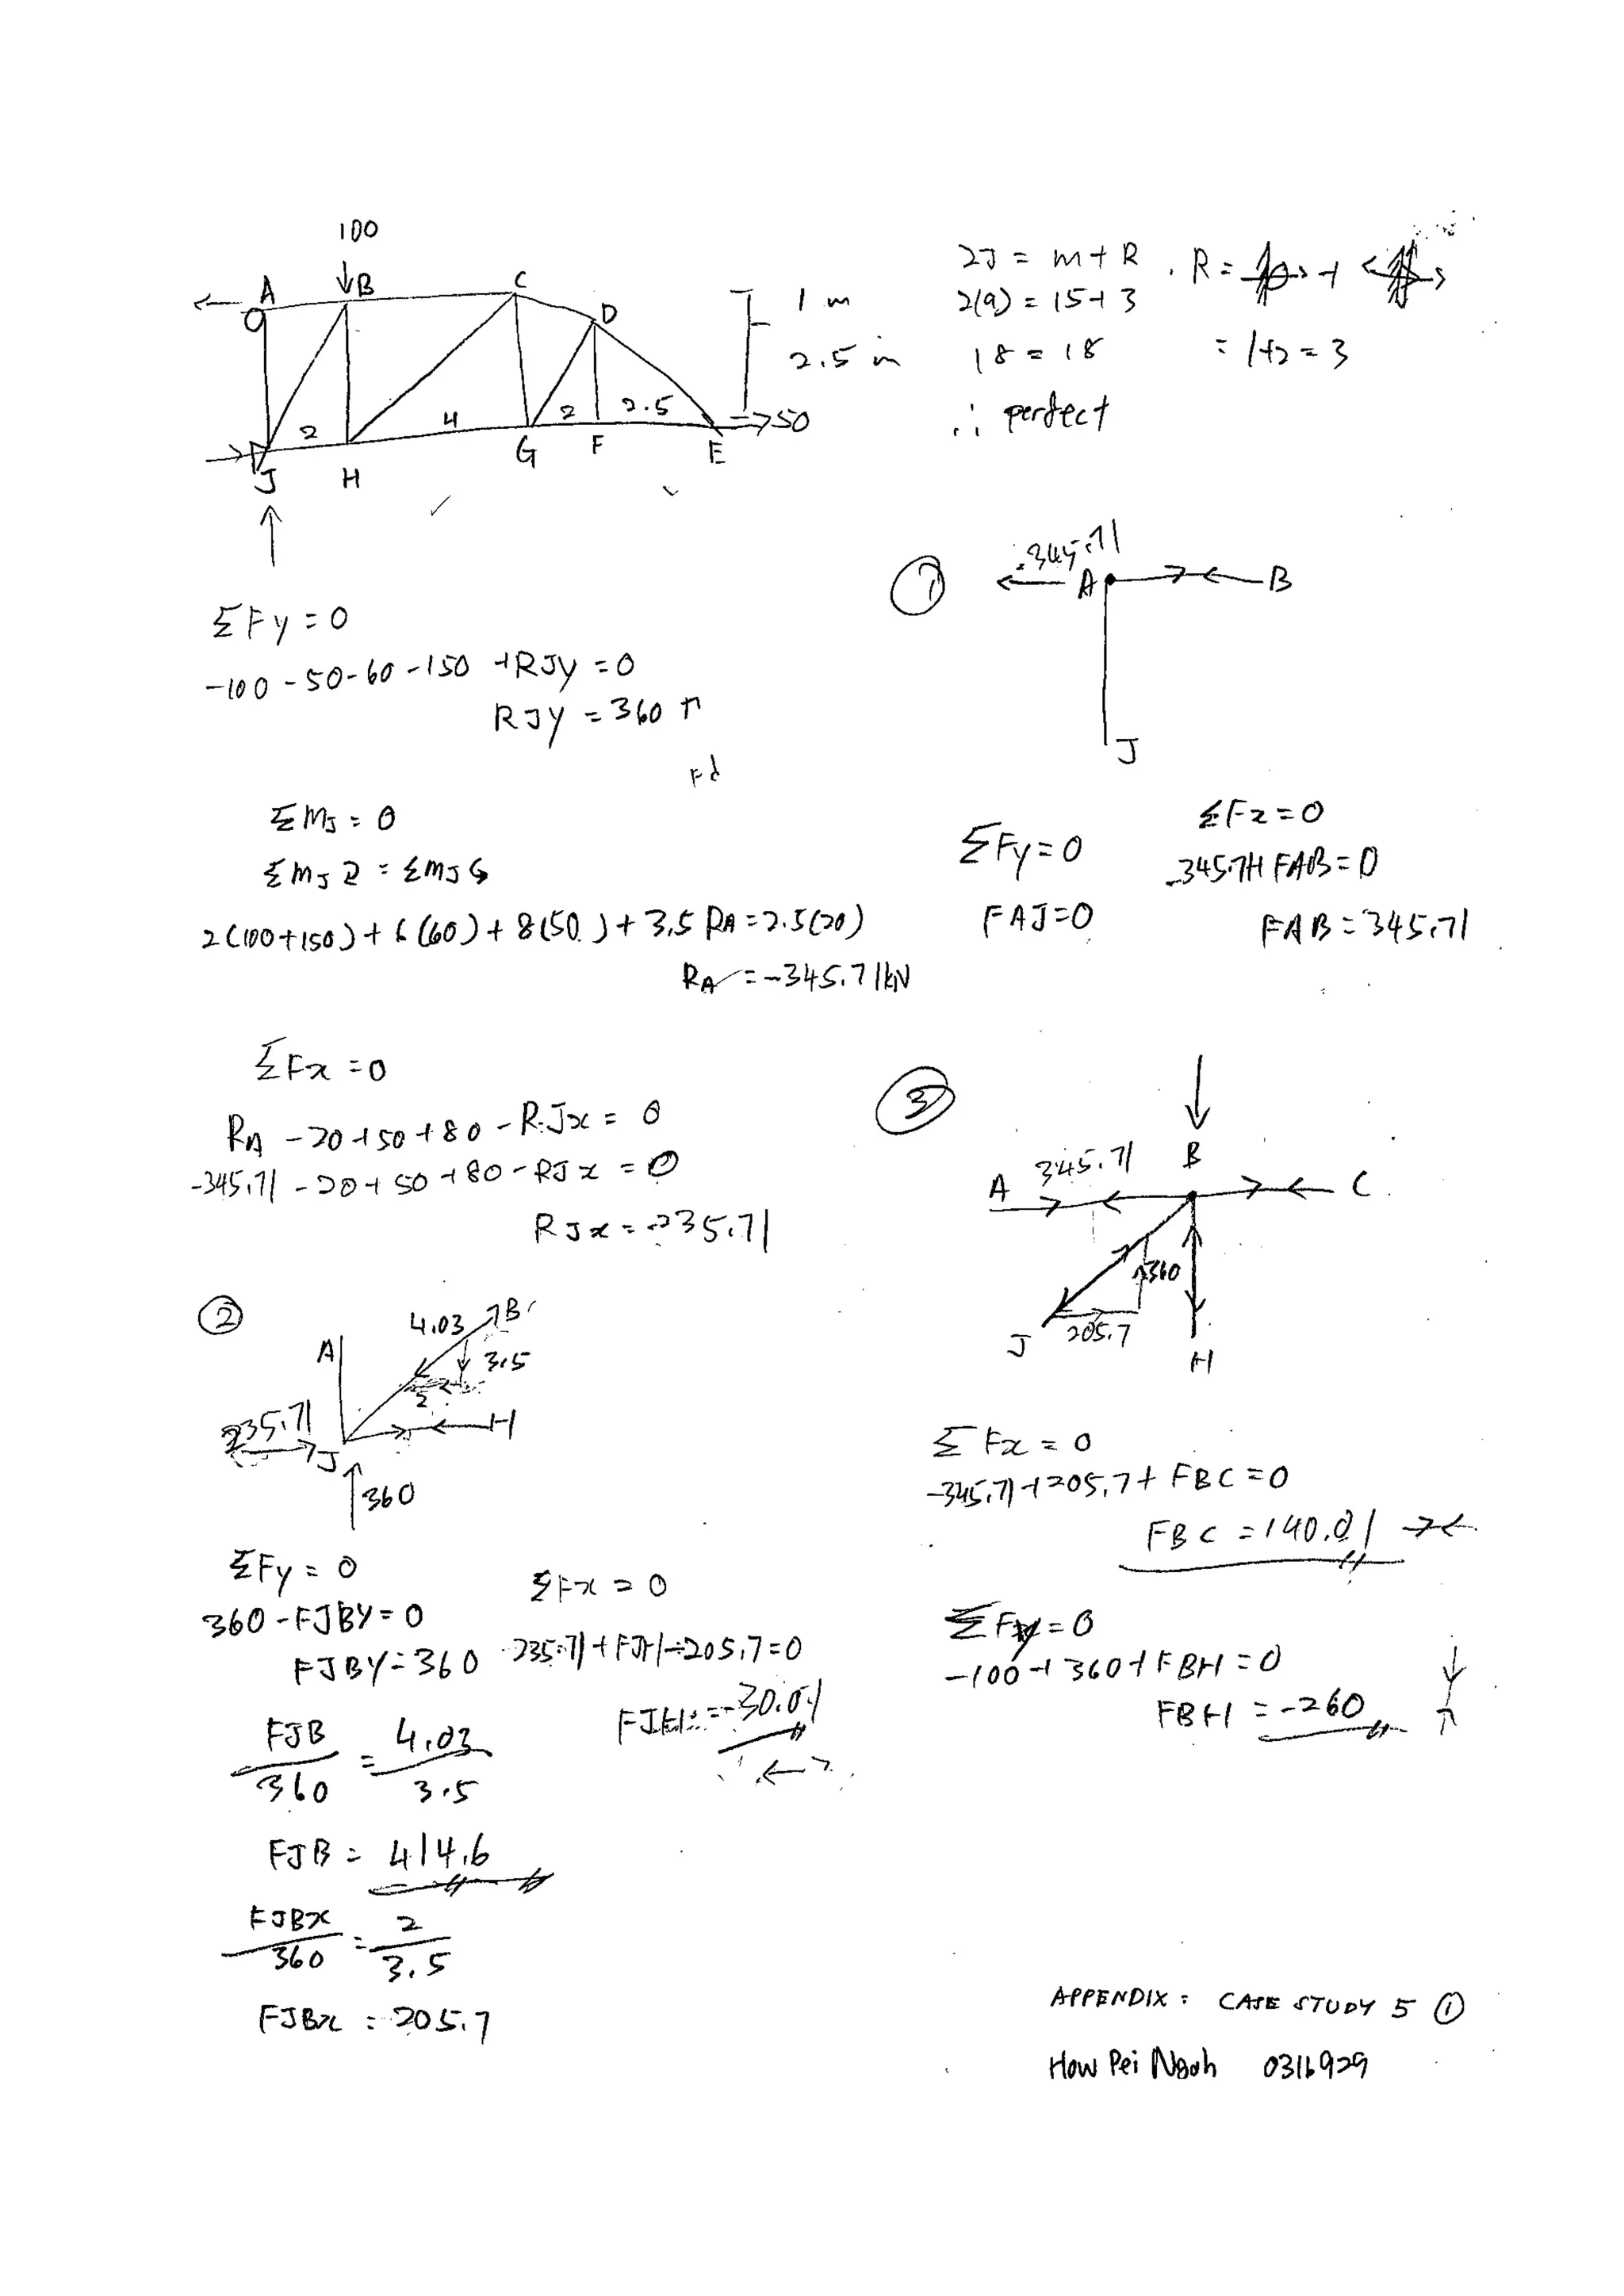 100
A
B
C
D
1 m
2.5 m
2
4
2
2.5
50
J
H
G
F
E
2J = m + R
2(9) = 15+3
18 = 18
∴ perfect
R =
= 1+2 = 3
ΣFy = 0
-100 -50-60-150 +RJy = 0
RJy = 360 ↑
ΣMJ = 0
ΣMJ ↻ = ΣMJ ↺
2(100+150) + 6(60) + 8(50) + 3.5 RA = 2.5(20)
RA = -345.71kN
ΣFx = 0
RA -20+50+80 -RJx = 0
-345.71 -20+50+80-RJx = 0
RJx = -235.71
①
345.71
A
B
J
ΣFy = 0
FAJ = 0
ΣFx = 0
-345.71+FAB = 0
FAB = 345.71
②
A
4.03
B
3.5
2
235.71
J
H
360
ΣFy = 0
360 - FJBY = 0
FJBY = 360
FJB/360 = 4.03/3.5
FJB = 414.6
FJBx/360 = 2/3.5
FJBx = 205.7
ΣFx = 0
235.71+FJH-205.7=0
FJH = -30.01
③
A
345.71
B
C
360
205.7
J
H
ΣFx = 0
-345.71+205.7+FBC = 0
FBC = 140.01
ΣFy = 0
-100+360+FBH = 0
FBH = -260
APPENDIX : CASE STUDY 5 ①
How Pei Ngoh 0316929